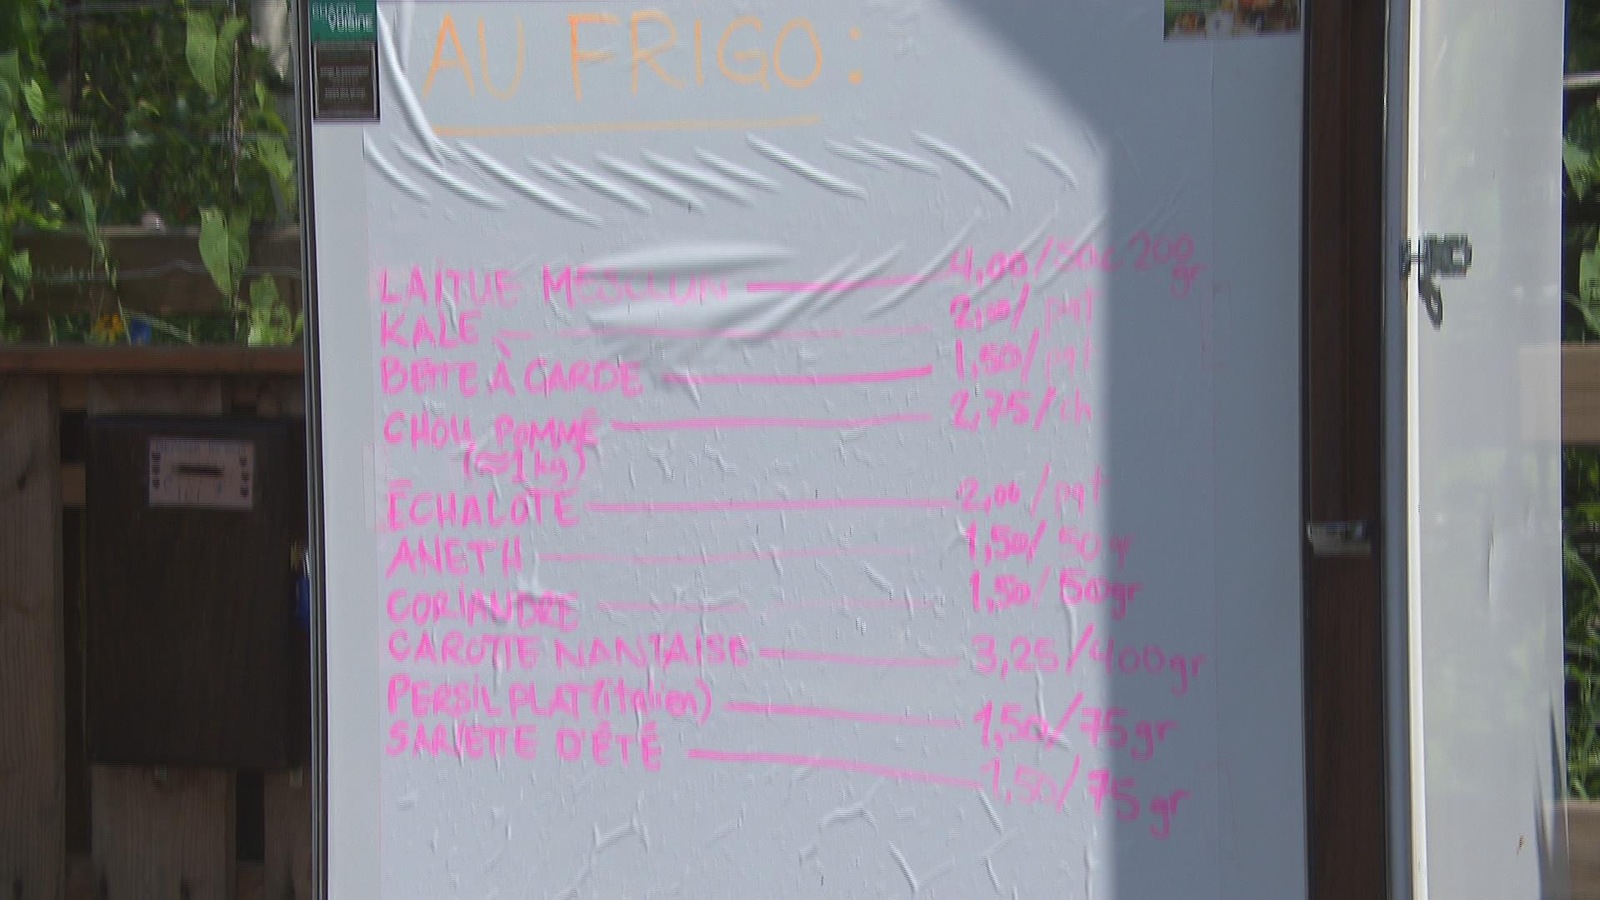 CHAMP
VOISINE
AU FRIGO :
LAITUE MESCLUN 4,00/sac 200 gr
KALE 2,00/pqt
BETTE À CARDE 1,50/pqt
CHOU POMMÉ 2,75/ch
(≈1 kg)
ÉCHALOTE 2,00/pqt
ANETH 1,50/50gr
CORIANDRE 1,50/50gr
CAROTTE NANTAISE 3,25/400gr
PERSIL PLAT (italien) 1,50/75gr
SARIETTE D'ÉTÉ 1,50/75 gr